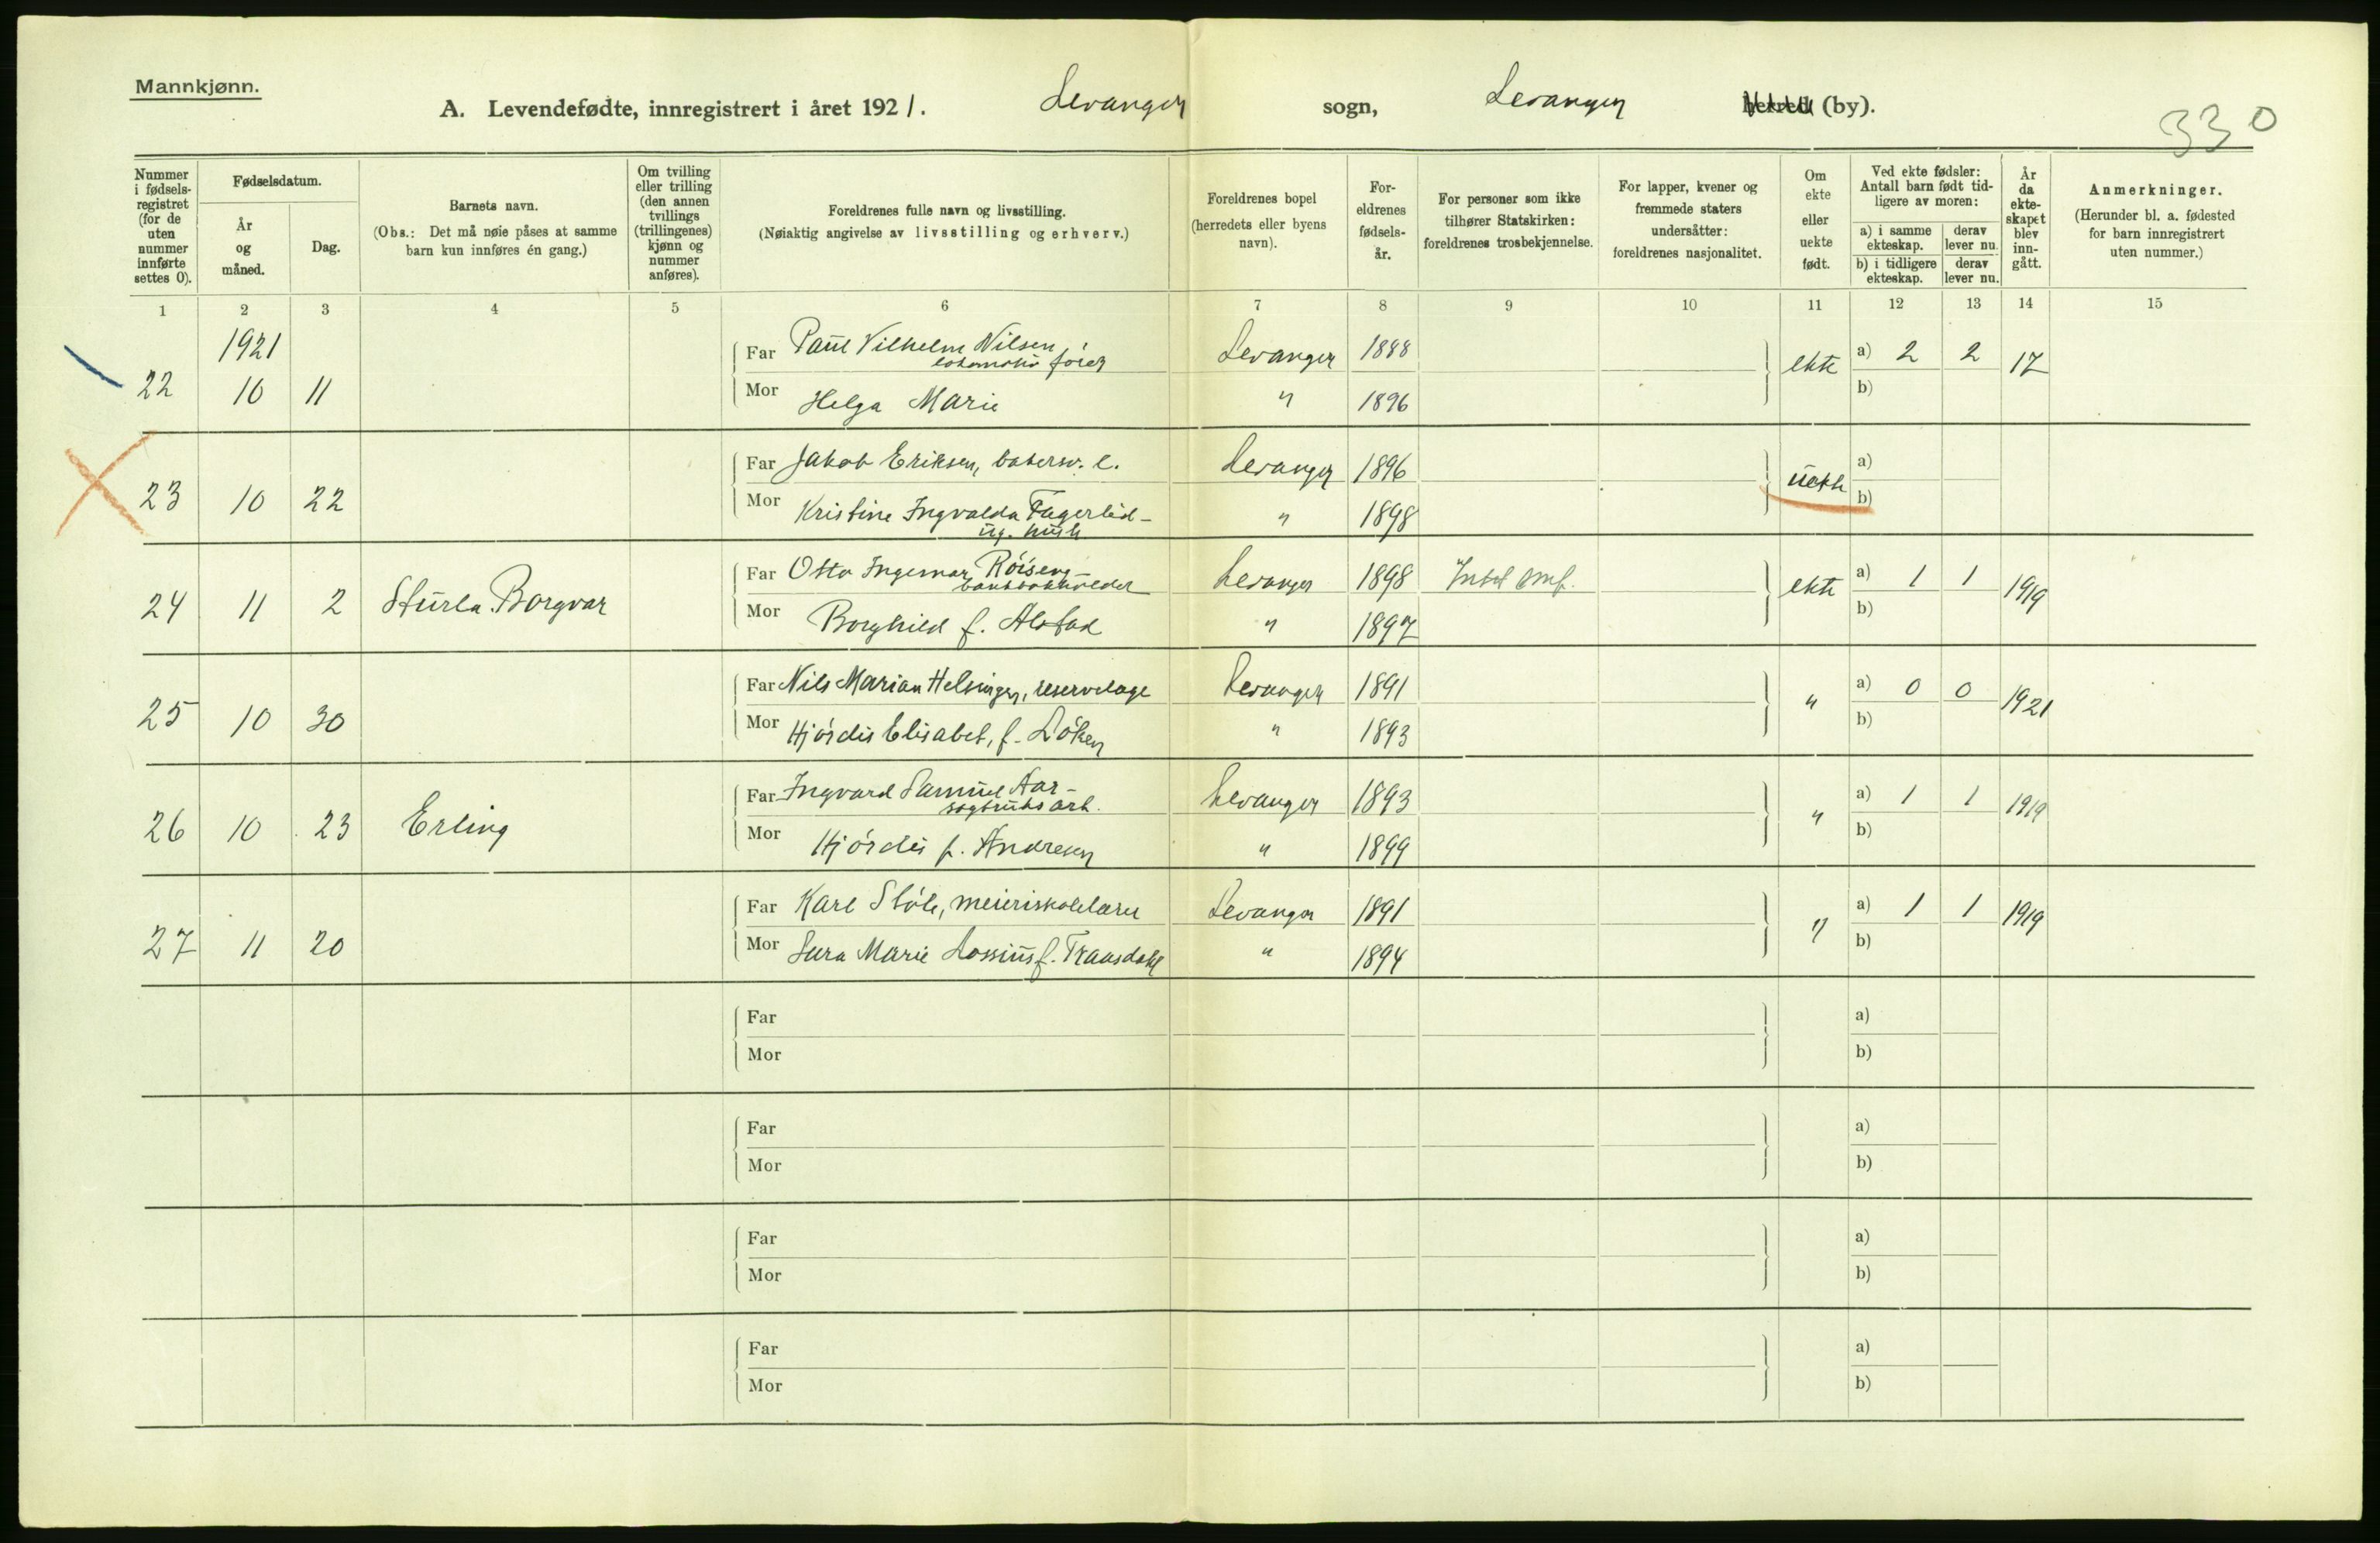 Mannkjønn.
A. Levendefødte, innregistrert i året 1921. Levanger sogn, Levanger herred (by).
330
Nummer i fødsels-registret (for de uten nummer innførte settes 0).
Fødselsdatum.
År og måned.
Dag.
Barnets navn.
(Obs.: Det må nøie påses at samme barn kun innføres én gang.)
Om tvilling eller trilling (den annen tvillings (trillingenes) kjønn og nummer anføres).
Foreldrenes fulle navn og livsstilling.
(Nøiaktig angivelse av livsstilling og erhverv.)
Foreldrenes bopel (herredets eller byens navn).
For-eldrenes fødsels-år.
For personer som ikke tilhører Statskirken: foreldrenes trosbekjennelse.
For lapper, kvener og fremmede staters undersåtter: foreldrenes nasjonalitet.
Om ekte eller uekte født.
Ved ekte fødsler: Antall barn født tid-ligere av moren:
a) i samme ekteskap. derav lever nu.
b) i tidligere ekteskap. derav lever nu.
År da ekte-skapet blev inn-gått.
Anmerkninger.
(Herunder bl. a. fødested for barn innregistrert uten nummer.)
1 2 3 4 5 6 7 8 9 10 11 12 13 14 15
1921
22 10 11
Far Paul Vilhelm Nilsen, lokomotivfører Levanger 1888 ekte a) 2 2 17
Mor Helga Marie " 1896 b)
23 10 22
Far Jakob Eriksen, bakersv. e. Levanger 1896 uekte a)
Mor Kristine Ingvalda Fagerlid - ug. hush " 1898 b)
24 11 2 Sturla Borgvar
Far Otto Ingemar Röiseng - bankbokholder Levanger 1898 ekte a) 1 1 1919
Mor Borghild f. Alstad " 1897 b)
25 10 30
Far Nils Marian Helsinger, reservelæge Levanger 1891 " a) 0 0 1921
Mor Hjördis Elisabet, f. Löken " 1893 b)
26 10 23 Erling
Far Ingvard Samuel Aar - sagbruksarb. Levanger 1893 " a) 1 1 1919
Mor Hjördis f. Andresen " 1899 b)
27 11 20
Far Karl Støle, meieriskolelærer Levanger 1891 " a) 1 1 1919
Mor Sara Marie Lossius f. Traasdahl " 1894 b)
Far a)
Mor b)
Far a)
Mor b)
Far a)
Mor b)
Far a)
Mor b)